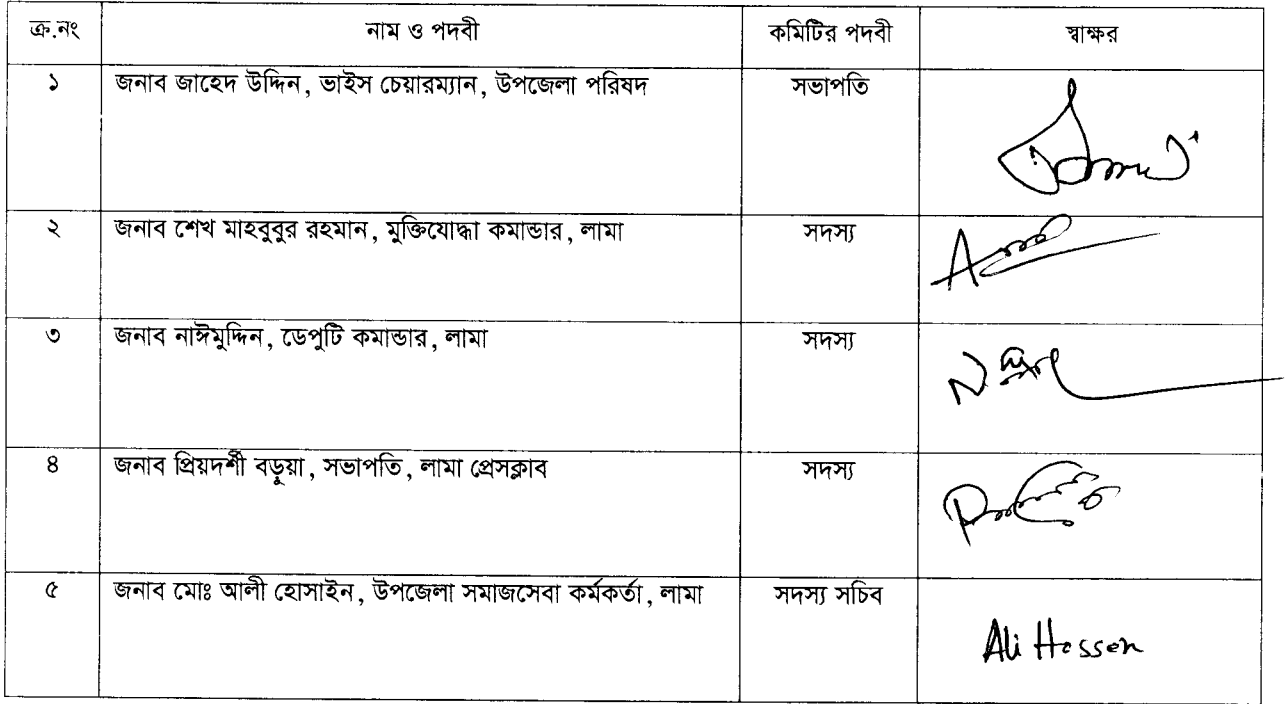 ক্র.নং নাম ও পদবী কমিটির পদবী স্বাক্ষর
১ জনাব জাহেদ উদ্দিন, ভাইস চেয়ারম্যান, উপজেলা পরিষদ সভাপতি
২ জনাব শেখ মাহবুবুর রহমান, মুক্তিযোদ্ধা কমান্ডার, লামা সদস্য
৩ জনাব নাঈমুদ্দিন, ডেপুটি কমান্ডার, লামা সদস্য
৪ জনাব প্রিয়দর্শী বড়ুয়া, সভাপতি, লামা প্রেসক্লাব সদস্য
৫ জনাব মোঃ আলী হোসাইন, উপজেলা সমাজসেবা কর্মকর্তা, লামা সদস্য সচিব
Ali Hossen